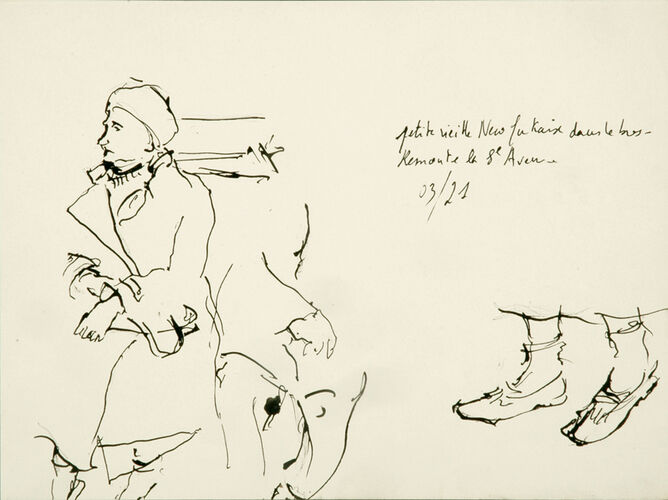 petite vieille New Yorkaise dans le bus
Remonte la 8e Avenue
03/21